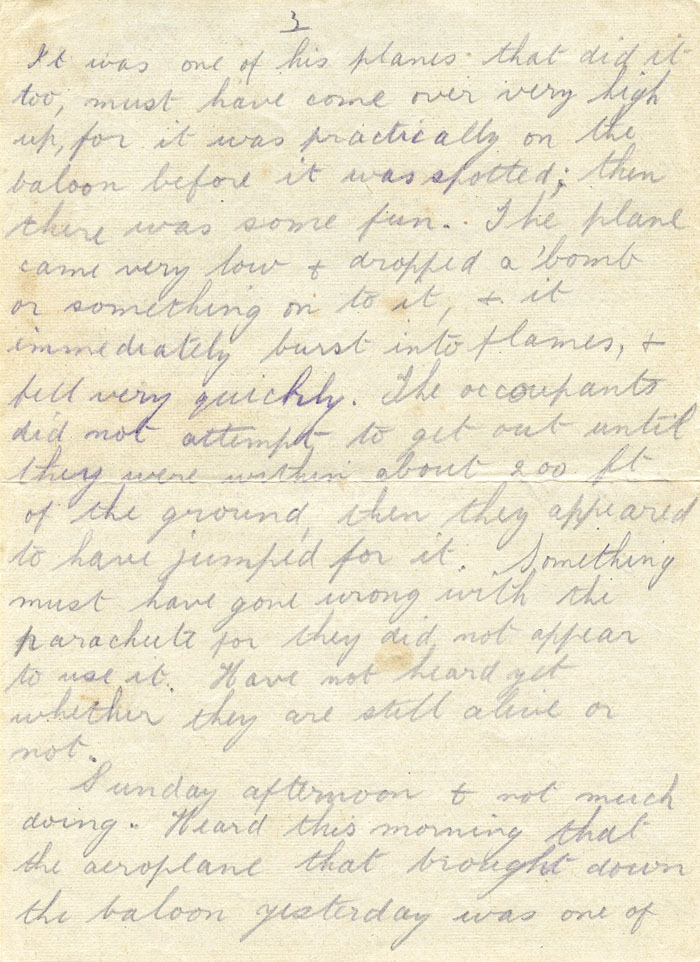 3
It was one of his planes that did it
too, must have come over very high
up, for it was practically on the
baloon before it was spotted; then
there was some fun. The plane
came very low & dropped a 'bomb
or something on to it, & it
immediately burst into flames, &
fell very quickly. The occoupants
did not attempt to get out until
they were within about 200 ft
of the ground, then they appeared
to have jumped for it. Something
must have gone wrong with the
parachute for they did not appear
to use it. Have not heard yet
whether they are still alive or
not.
Sunday afternoon & not much
doing. Heard this morning that
the aeroplane that brought down
the baloon yesterday was one of